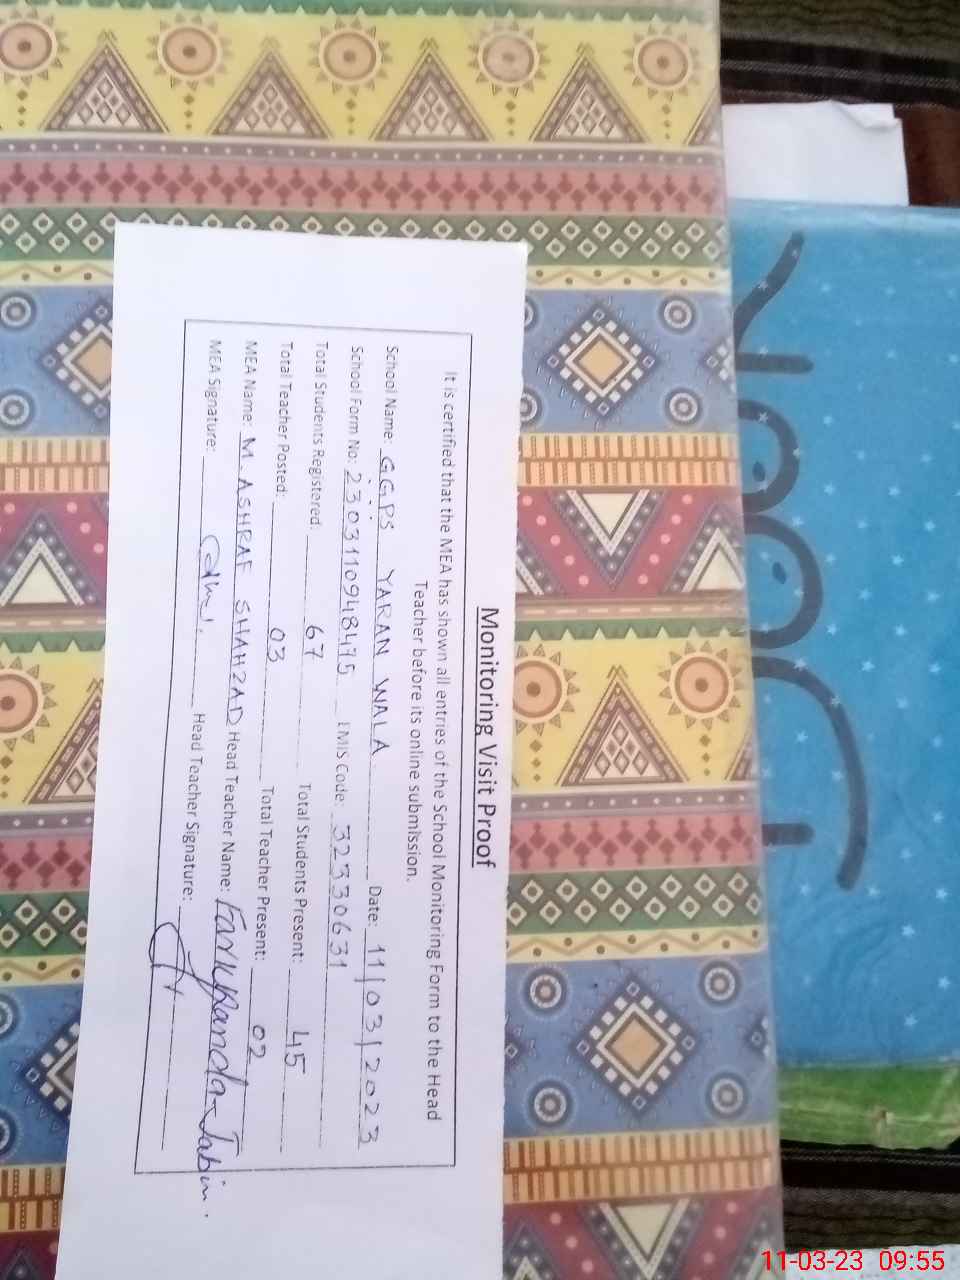 Monitoring Visit Proof
It is certified that the MEA has shown all entries of the School Monitoring Form to the Head
Teacher before its online submission.
School Name: GGPS YARAN WALA Date: 11/03/2023
School Form No: 2303110948475 EMIS Code: 32330631
Total Students Registered: 67 Total Students Present: 45
Total Teacher Posted: 03 Total Teacher Present: 02
MEA Name: M. ASHRAF SHAHZAD Head Teacher Name: Farkhanda Jabin.
MEA Signature: Head Teacher Signature:
11-03-23 09:55